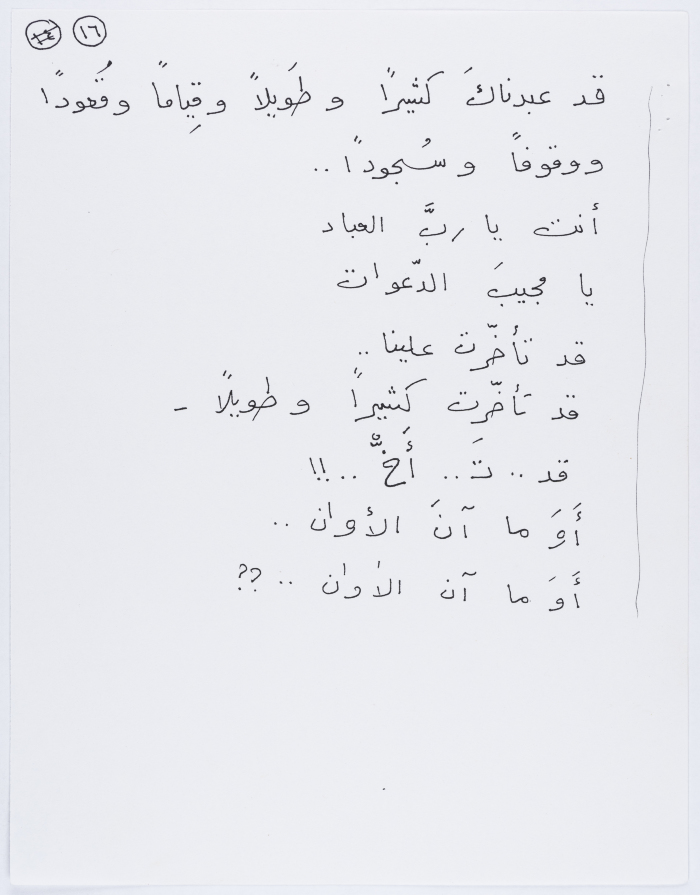 ١٦
قد عبدناكَ كثيراً و طَويلاً وقِياماً وقُعوداً
ووقوفاً و سُجوداً ..
أنت يا ربَّ العباد
يا مجيبَ الدّعوات
قد تأخّرت علينا ..
قد تأخّرت كثيراً و طويلاً -
قد .. تَ .. أَخّْ .. !!
أَوَ ما آنَ الأوان ..
أَوَ ما آن الأوان .. ??